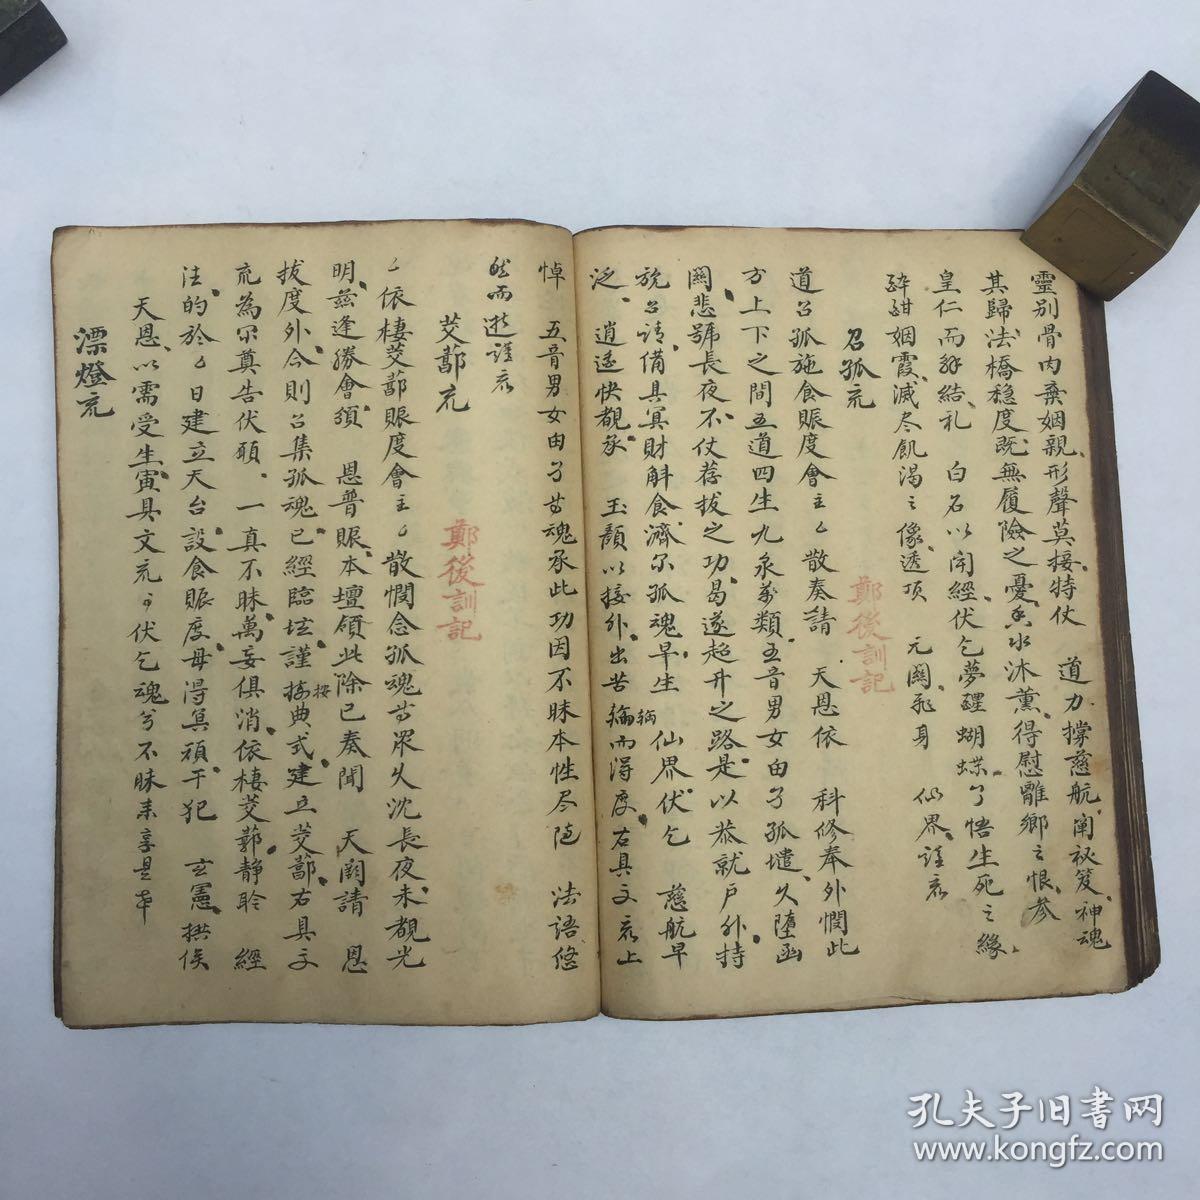 靈別骨肉棄姻親形聲莫接特仗 道力撐慈航闡祕笈神魂
其歸法橋穩度既無履險之憂香水沐薰得慰離鄉之恨參
皇仁而解結礼 白石以開經伏乞夢醒蝴蝶了悟生死之緣
醉酣烟霞滅尽飢渴之像透頂 元關飛身 仙界謹意
召孤充
鄭後訓記
道召孤施食賑度會主厶散奏請 天恩依 科修奉外憫此
方上下之間五道四生九泉萬類五音男女由子孤壝久墮函
關悲號長夜不仗荐拔之功曷遂超升之路是以恭就戶外持
旐召請備具冥財斛食濟尔孤魂早生 仙界伏乞 慈航早
泛 逍遥快覩承 玉顏以接外出苦輪而得度右具文意上
悼 五音男女由子苦魂承此功因不昧本性尽隨 法語悠
然而逝謹意
茭鄗充
鄭後訓記
厶依棲茭鄗賑度會主厶散憫念孤魂苦眾久沈長夜未覩光
明茲逢勝會須 恩普賑本壇領此除已奏聞 天闕請 恩
拔度外今則召集孤魂已經臨坛謹按典式建立茭鄗右具文
充為尔奠告伏願 一真不昧萬妄俱消依棲茭鄗靜聆 經
法的於厶日建立天台設食賑度毋得冥頑干犯 玄憲拱俟
天恩以需受生寅具文充 伏乞魂兮不昧來享是幸
漂燈充
孔夫子旧書网
www.kongfz.com